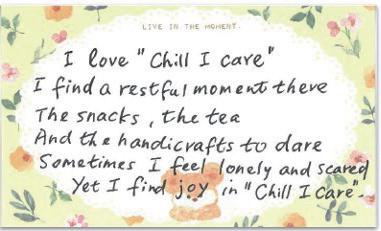 LIVE IN THE MOMENT.
I love "Chill I care"
I find a restful moment there
The snacks, the tea
And the handicrafts to dare
Sometimes I feel lonely and scared
Yet I find joy in "Chill I Care".